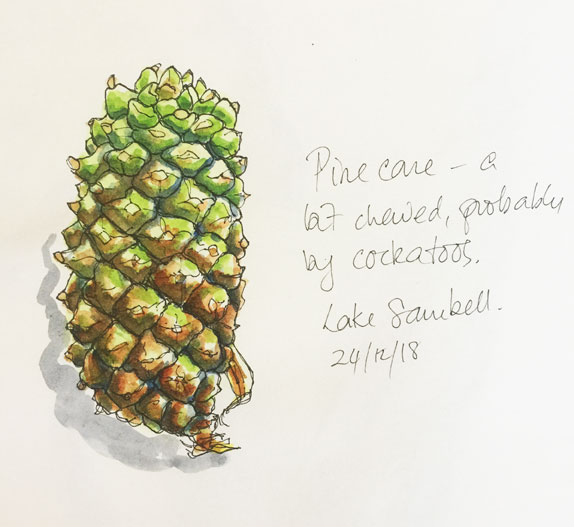 Pine cone – a
bit chewed, probably
by cockatoos.
Lake Sambell.
24/12/18